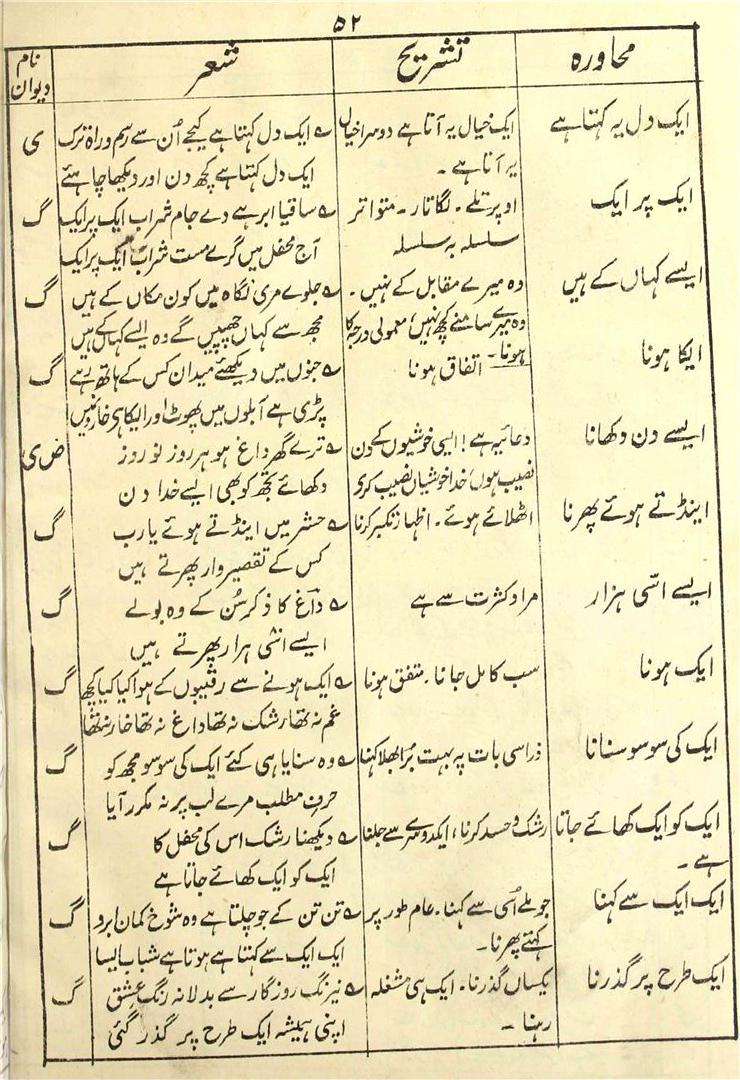 ۵۲
محاورہ | تشریح | شعر | نام دیوان
ایک دل یہ کہتا ہے | ایک خیال یہ آتا ہے دوسرا خیال | ؎ ایک دل کہتا ہے کیجے اُن سے رسم و راہ ترک | ی
یہ آتا ہے ۔ | ایک دل کہتا ہے کچھ دن اور دیکھا چاہئے
ایک پر ایک | اوپر تلے ۔ لگاتار ۔ متواتر | ؎ ساقیا ابر ہے دے جام شراب ایک پر ایک | گ
سلسلہ بہ سلسلہ | آج محفل میں گرے مست شراب ایک پر ایک
ایسے کہاں کے ہیں | وہ میرے مقابل کے نہیں ۔ | ؎ جلوے مری نگاہ میں کون مکاں کے ہیں | گ
وہ میرے سامنے کچھ نہیں، معمولی درجہ کا | مجھ سے کہاں چھپیں گے وہ ایسے کہاں کے ہیں
ایکا ہونا | ہونا ۔ اتفاق ہونا | ؎ جنوں میں دیکھئے میدان کس کے ہاتھ رہے | گ
پڑی ہے آبلوں میں پھوٹ اور ایکا ہی خاروں میں
ایسے دن دکھانا | دعائیہ ہے! ایسی خوشیوں کے دن | ؎ ترے گھر داغ ہو ہر روز نوروز | ض ی
نصیب ہوں، خدا خوشیاں نصیب کری | دکھائے تجھ کو بھی ایسے خدا دن
اینڈتے ہوئے پھرنا | اٹھلائے ہوئے ۔ اظہار تکبر کرنا | ؎ حشر میں اینڈتے ہوئے یارب | گ
کس کے تقصیر وار پھرتے ہیں
ایسے اسّی ہزار | مراد کثرت سے ہے | ؎ داغ کا ذکر سُن کے وہ بولے | گ
ایسے اسّی ہزار پھرتے ہیں
ایک ہونا | سب کا مل جانا ۔ متفق ہونا | ؎ ایک ہونے سے رقیبوں کے ہوا کیا کیا کچھ | گ
غم نہ تھا رشک نہ تھا داغ نہ تھا خار نہ تھا
ایک کی سو سو سنانا | ذراسی بات پہ بہت بُرا بھلا کہنا | ؎ وہ سنایا ہی کئے ایک کی سو سو مجھ کو | گ
حرف مطلب مرے لب پر نہ مکرر آیا
ایک کو ایک کھائے جاتا | رشک و حسد کرنا، ایکدوسرے سے جلنا | ؎ دیکھنا رشک اس کی محفل کا | گ
ہے ۔ | ایک کو ایک کھائے جاتا ہے
ایک ایک سے کہنا | جو ملے اُسی سے کہنا ۔ عام طور پر | ؎ تن تن کے جو چلتا ہے وہ شوخ کمان ابرو | گ
کہتے پھرنا ۔ | ایک ایک سے کہتا ہے ہوتا ہے شباب ایسا
ایک طرح پر گذرنا | یکساں گذرنا ۔ ایک ہی مشغلہ | ؎ نیرنگ روزگار سے بدلا نہ رنگ عشق | گ
رہنا ۔ | اپنی ہمیشہ ایک طرح پر گذر گئی